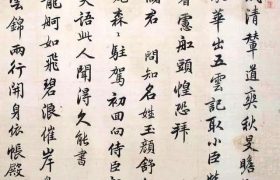 清輦道爽秋旻瞻
華出五雲記取小臣
舡頭惶恐拜
君 問知名姓玉顏舒
森森駐駕初回向侍臣
天語此人聞得久能書
龍舸如飛碧浪催岸
雲錦兩行開身依帳殿